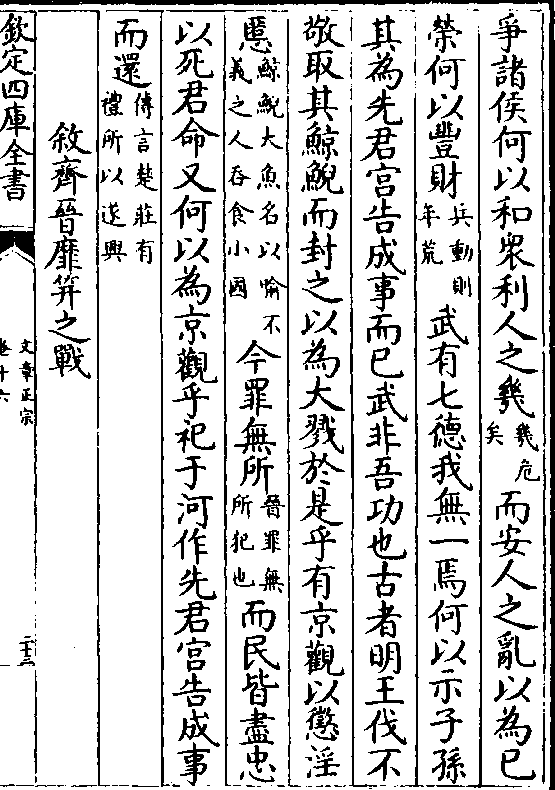 爭諸侯何以和衆利人之㡬㡬危矣而安人之亂以為己
榮何以豐財兵動則年荒武有七德我無一焉何以示子孫
其為先君宫告成事而已武非吾功也古者明王伐不
敬取其鯨鯢而封之以為大戮於是乎有京觀以懲淫
慝鯨鯢大魚名以喻不義之人吞食小國今罪無所晉罪無所犯也而民皆盡忠
以死君命又何以為京觀乎祀于河作先君宫告成事
而還傳言楚莊有禮所以遂興
敘齊晉靡笄之戰
欽定四庫全書
文章正宗
卷十六
二十三